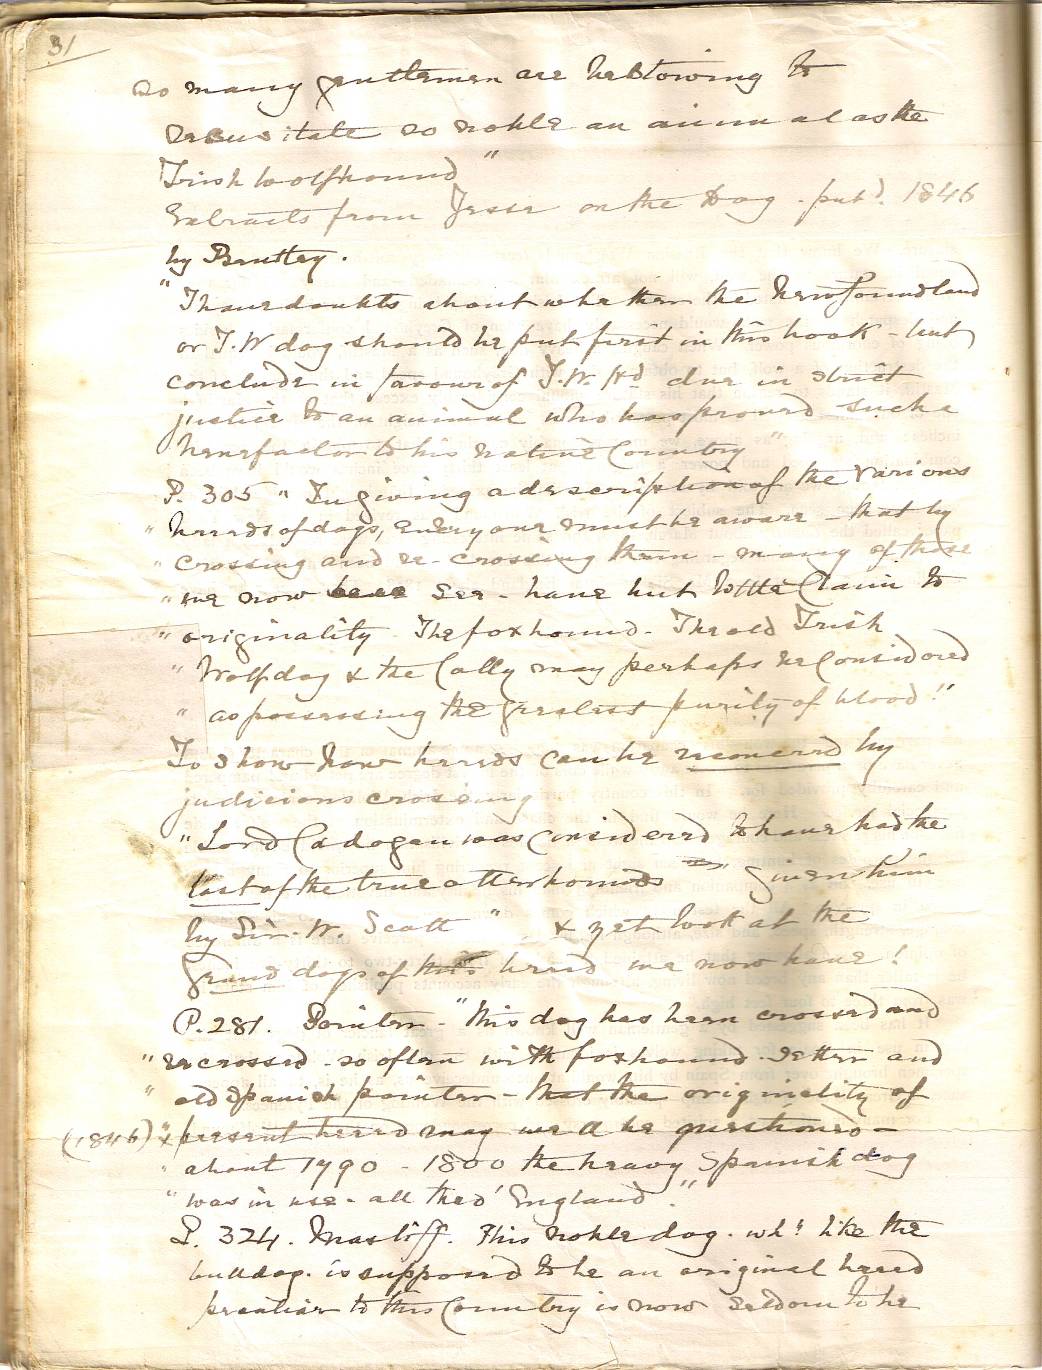 31
so many gentlemen are bestowing to
resusitate so noble an animal as the
Irish Wolfhound"
Extracts from Jesse on the Dog. pubd. 1846
by Bentley.
"I have doubts about whether the Newfoundland
or I.W dog should be put first in this book - but
conclude in favour of I.W. Hd due in strict
justice to an animal who has proved such a
benefactor to his native Country"
P. 305 "In giving a description of the various
" breeds of dogs, every one must be aware - that by
" crossing and re-crossing them - many of those
" we now see - have but little Claim to
" originality. The foxhound - The old Irish
" Wolfdog & the Colly may perhaps be Considered
" as possessing the greatest purity of blood!"
To show how breeds can be recovered by
judicious crossing
"Lord Cadogan was Considered to have had the
last of the true otterhounds" given him
by Sir. W. Scott" & yet look at the
grand dogs of this breed we now have!
P. 281. Pointer - "This dog has been crossed and
" recrossed - so often with foxhound - setter and
" old Spanish pointer - that the originality of
(1846) " present breed may well be questioned -
" about 1790 - 1800 the heavy Spanish dog
" was in use - all thro' England."
P. 324. Mastiff. This noble dog. whh like the
bulldog. is supposed to be an original breed
peculiar to this Country is now seldom to be